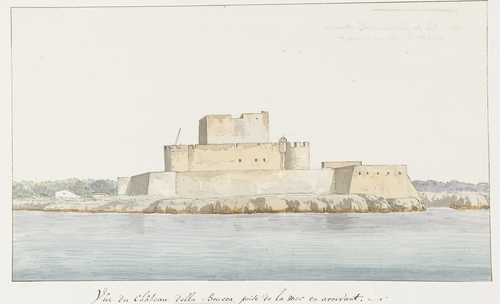 Vüe du Château della Brucca prise de la mer en arrivant.